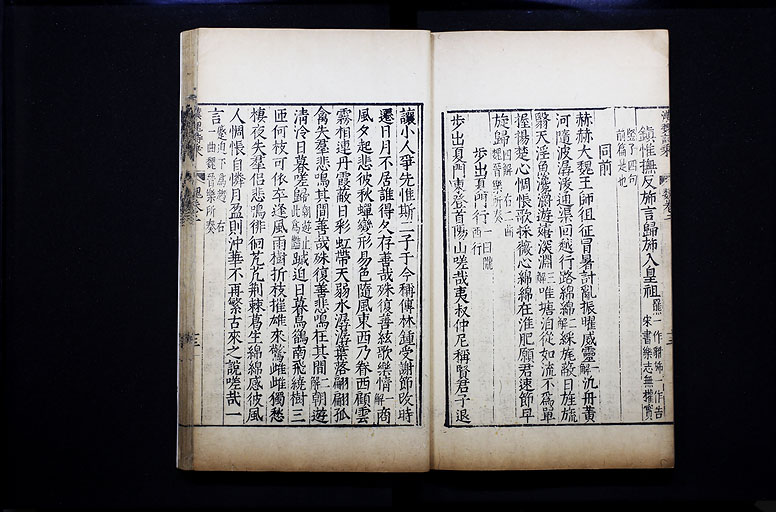 鎮惟撫反旆言歸旆入皇祖
宋書樂志無權實
竪子四句
前篇是也
同前
赫赫大魏王師徂征冒暑討亂振曜威靈一解汎舟黄
河隨波潺湲通渠回越行路綿綿二解綵旄蔽日旌旒
翳天淫魚瀺灂遊嬉深淵三解唯塘泊從如流不爲單
握揚楚心惆悵歌采薇心綿綿在淮肥願君速節早
旋歸四解 右一曲魏晉樂所奏
步出夏門行一曰隴西行
步出夏門東登首陽山嗟哉夷叔仲尼稱賢君子退
讓小人爭先惟斯二子于今稱傳林鍾受謝節改時
遷日月不居誰得久存善哉殊復善絃歌樂情一解商
風夕起悲彼秋蟬變形易色隨風東西乃眷西顧雲
霧相連丹霞蔽日彩虹帶天弱水潺潺葉落翩翩孤
禽失羣悲鳴其間善哉殊復善悲鳴在其間二解朝遊
清冷日暮嗟歸朝遊止此爲豔蹙迫日暮烏鵲南飛繞樹三
匝何枝可依卒逢風雨樹折枝摧雄來驚雌雌獨愁
棲夜失羣侣悲鳴徘徊芃芃荆棘葛生綿綿感彼風
人惆悵自憐月盈則沖華不再繁古來之說嗟哉一
言蹙迫下爲趨 右一曲魏晉樂所奏